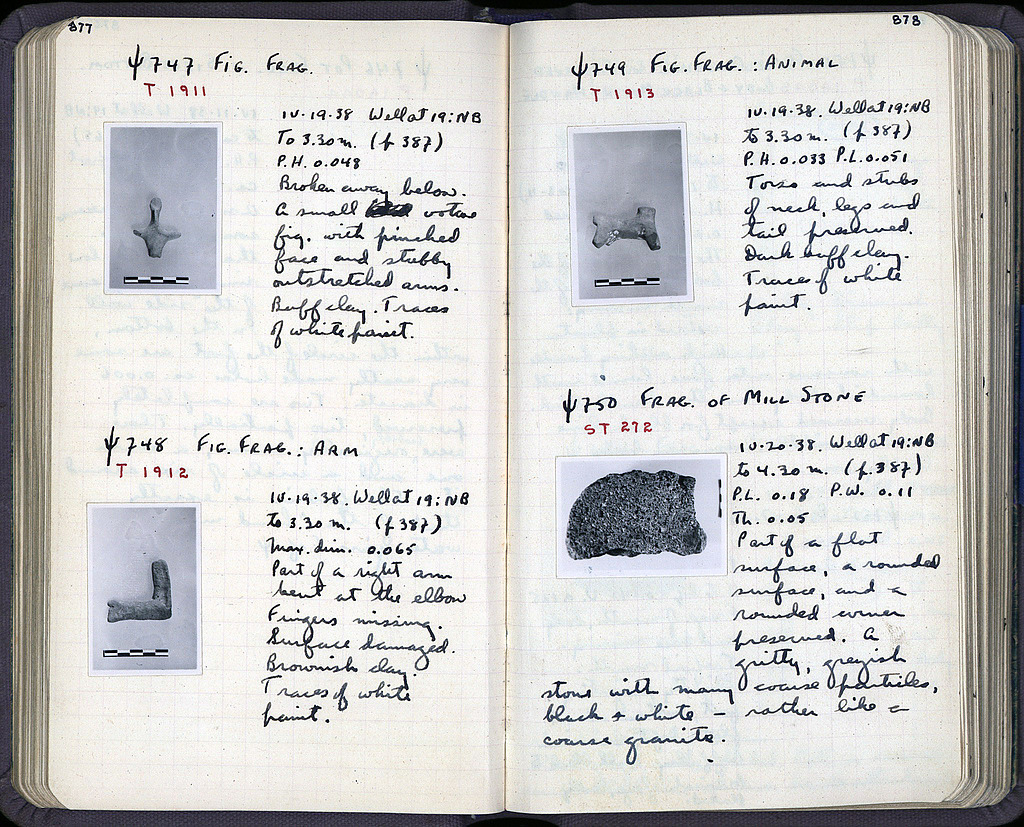 877
ψ747 FIG. FRAG.
T 1911
IV.19.38 Well at 19:NB
To 3.30 m. (p 387)
P.H. 0.048
Broken away below.
A small votive
fig. with pinched
face and stubby
outstretched arms.
Buff clay. Traces
of white paint.
ψ748 FIG. FRAG.: ARM
T 1912
IV.19.38. Well at 19:NB
to 3.30 m. (p 387)
Max. dim. 0.065
Part of a right arm
bent at the elbow
Fingers missing.
Surface damaged.
Brownish clay.
Traces of white
paint.
878
ψ749 FIG. FRAG. : ANIMAL
T 1913
IV.19.38. Well at 19:NB
to 3.30 m. (p 387)
P.H. 0.033 P.L. 0.051
Torso and stubs
of neck, legs and
tail preserved.
Dark buff clay.
Traces of white
paint.
ψ750 FRAG. OF MILL STONE
ST 272
IV.20.38. Well at 19:NB
to 4.30 m. (p.387)
P.L. 0.18 P.W. 0.11
Th. 0.05
Part of a flat
surface, a rounded
surface, and a
rounded corner
preserved. A
gritty, greyish
stone with many coarse particles,
black + white – rather like a
coarse granite.